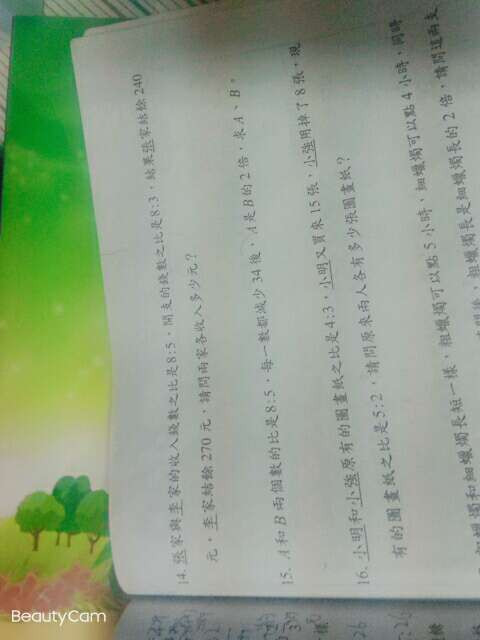 14. 張家與李家的收入錢數之比是8:5，開支的錢數之比是8:3，結果張家結餘240
元，李家結餘270元，請問兩家各收入多少元？
15. A和B兩個數的比是8:5，每一數都減少34後，A是B的2倍，求A、B。
16. 小明和小強原有的圖畫紙之比是4:3，小明又買來15張，小強用掉了8張，現
有的圖畫紙之比是5:2，請問原來兩人各有多少張圖畫紙？
粗蠟燭和細蠟燭長短一樣，粗蠟燭可以點5小時，細蠟燭可以點4小時，同時
粗蠟燭長是細蠟燭長的2倍，請問這兩支
BeautyCam